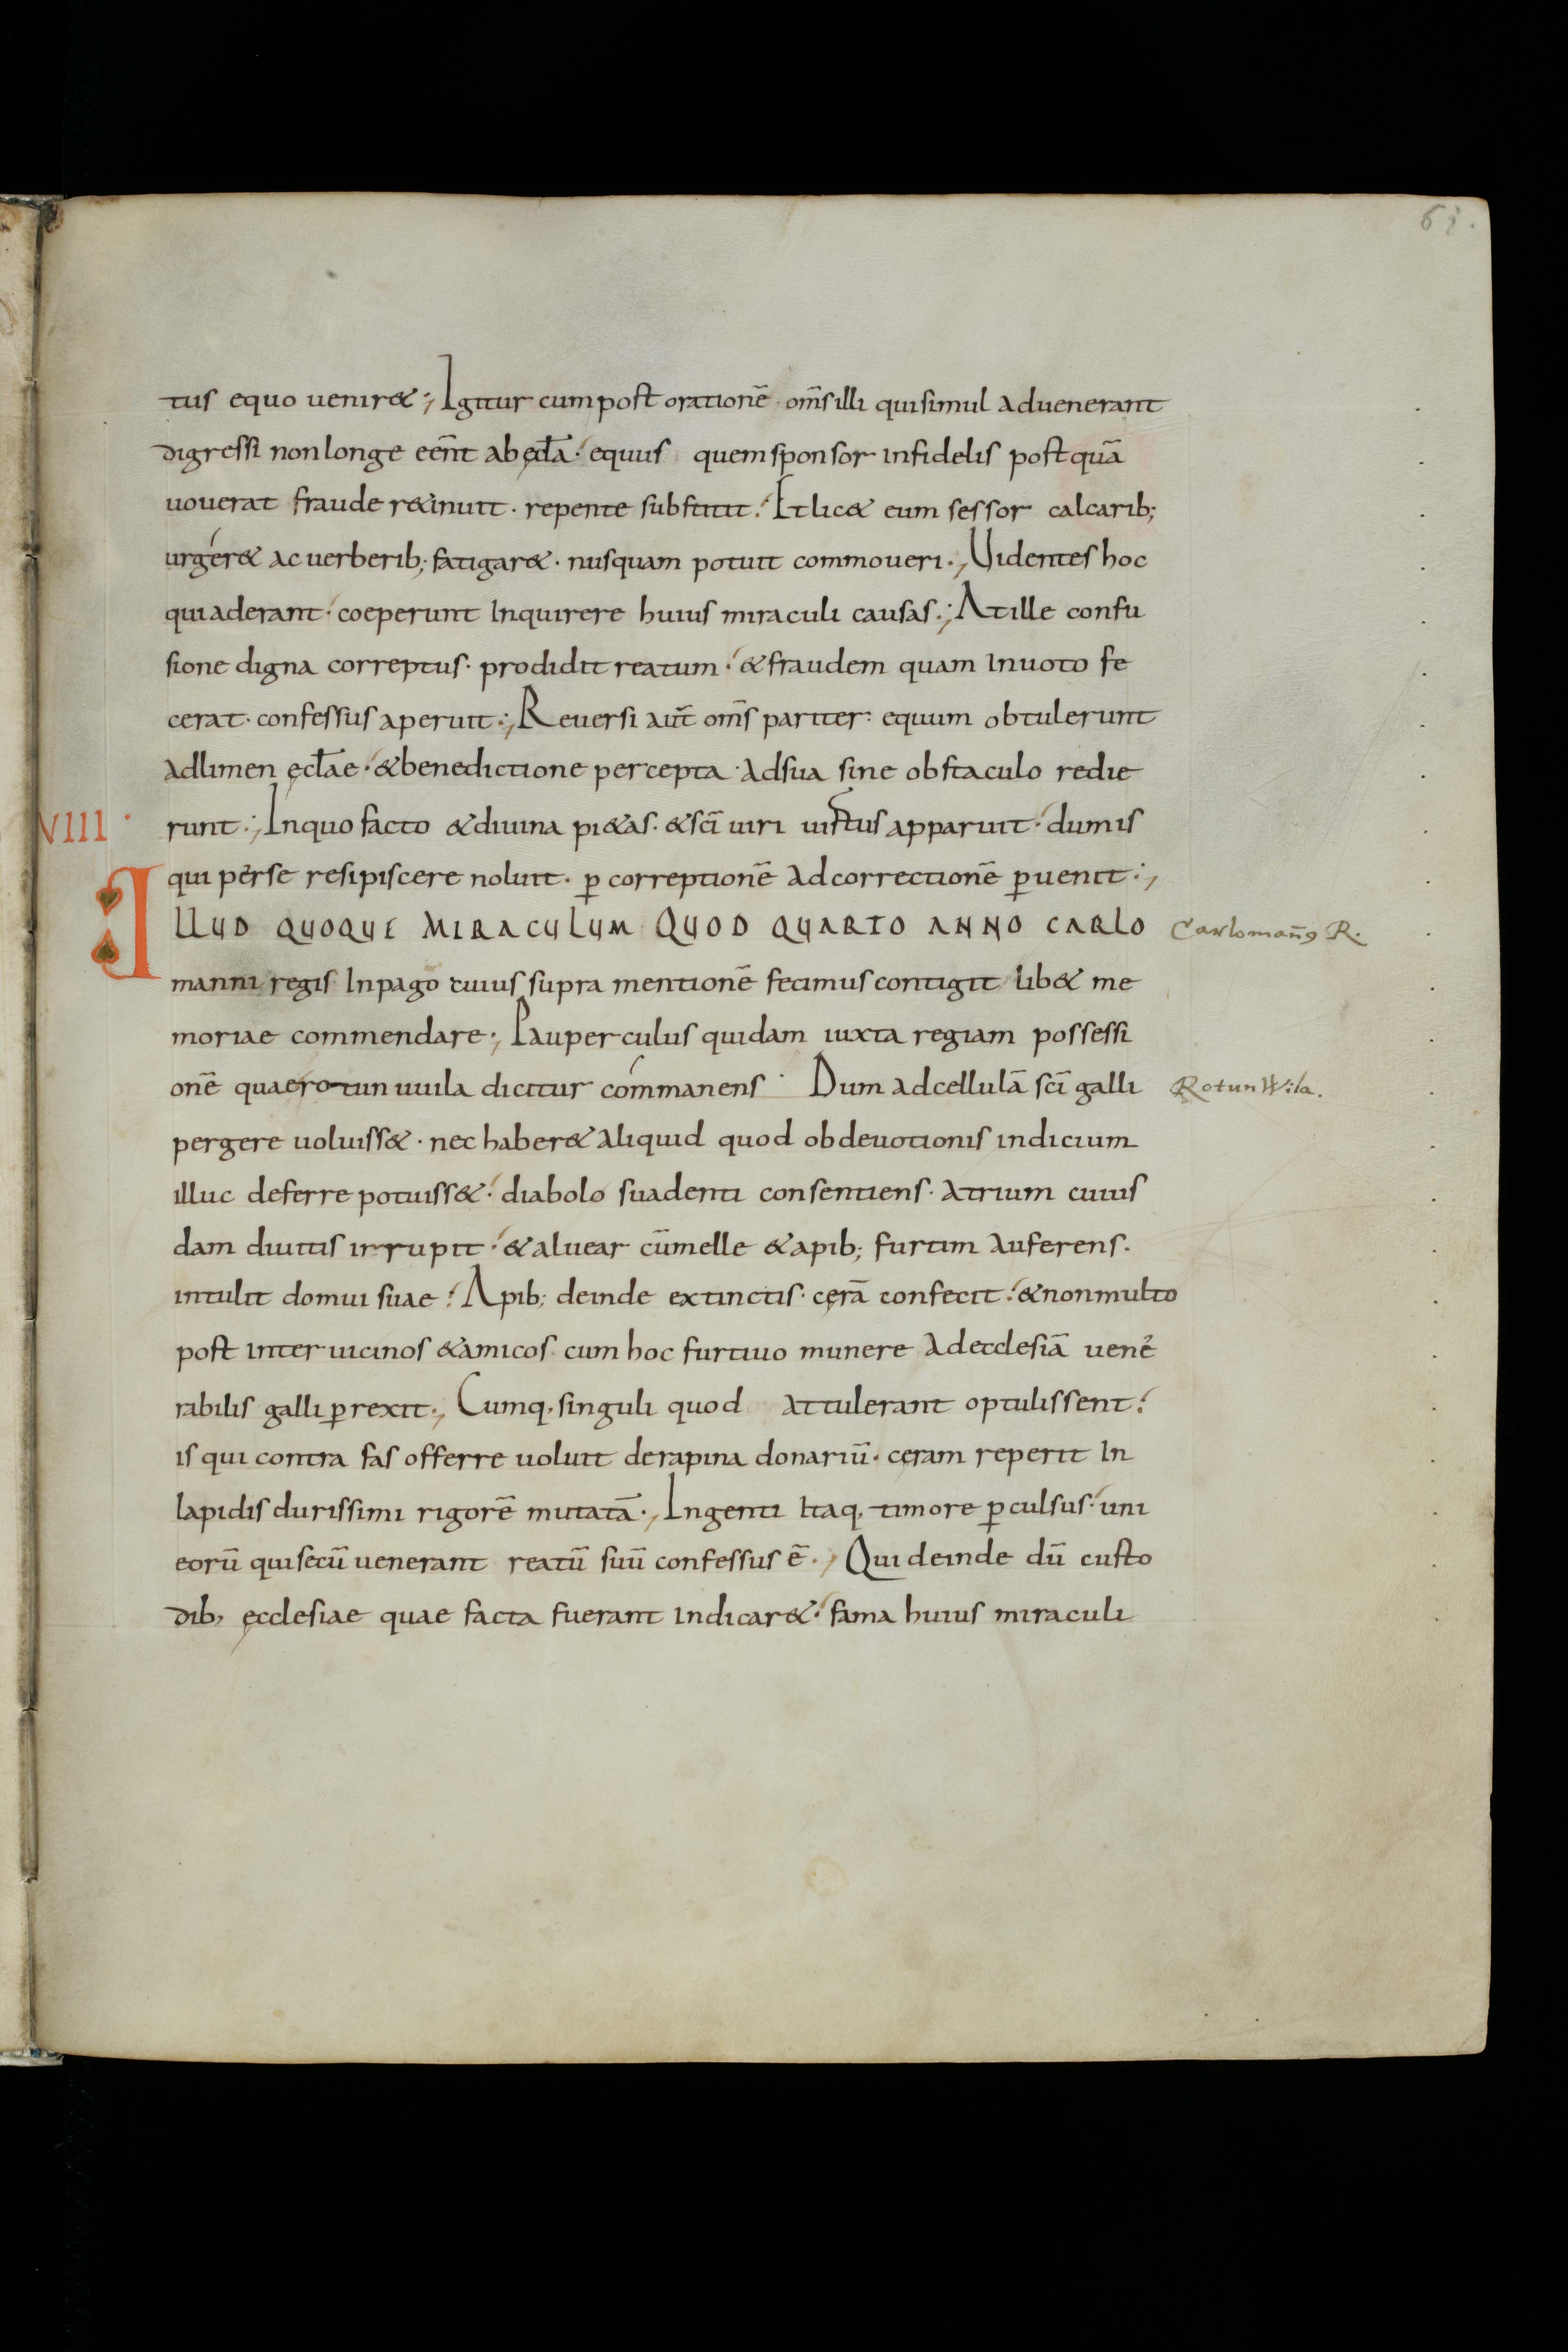 61.
tus equo uenir&; Igitur cum post orationē · om̄s illi qui simul aduenerant
digressi non longe eēnt ab ęcl̄a · equus quem sponsor infidelis post quā
uouerat fraude r&inuit · repente substitit; Et lic& eum sessor calcarib;
urger& ac uerberib; fatigar& · nusquam potuit commoueri ·, Uidentes hoc
qui aderant · coeperunt Inquirere huius miraculi causas ·; At ille confu
sione digna correptus · prodidit reatum · & fraudem quam Inuoto fe
cerat · confessus aperuit ·; Reuersi aut̄ om̄s pariter · equum obtulerunt
ad limen ęcl̄ae · & benedictione percepta · ad sua sine obstaculo redie
VIII ·
runt ·; In quo facto & diuina pi&as · & sc̄i uiri uirtus apparuit · dum is
qui per se resipiscere noluit · ꝑ correptionē ad correctionē ꝑuenit ·;
ILLUD QUOQUE MIRACULUM QUOD QUARTO ANNO CARLO
Carlomañ9 R.
manni regis In pago cuius supra mentionē fecimus contigit lib& me
moriae commendare ·, Pauperculus quidam iuxta regiam possessi
onē quae rotun uuila dicitur commanens · Dum ad cellulā sc̄i galli
Rotun Wila.
pergere uoluiss& · nec haber& aliquid quod ob deuotionis indicium
illuc deferre potuiss& · diabolo suadenti consentiens · atrium cuius
dam diuitis irrupit · & aluear cū melle & apib; furtim auferens ·
intulit domui suae; Apib; deinde extinctis · cęrā confecit · & non multo
post inter uicinos & amicos cum hoc furtiuo munere ad ecclesiā uene
rabilis galli ꝑrexit ·, Cumq, singuli quod attulerant optulissent ·
is qui contra fas offerre uoluit de rapina donariū · cęram reperit In
lapidis durissimi rigorē mutatā ·, Ingenti Itaq, timore ꝑculsus · uni
eorū qui secū uenerant reatū suū confessus ē ·, Qui deinde dū custo
dib; ęcclesiae quae facta fuerant indicar& · fama huius miraculi